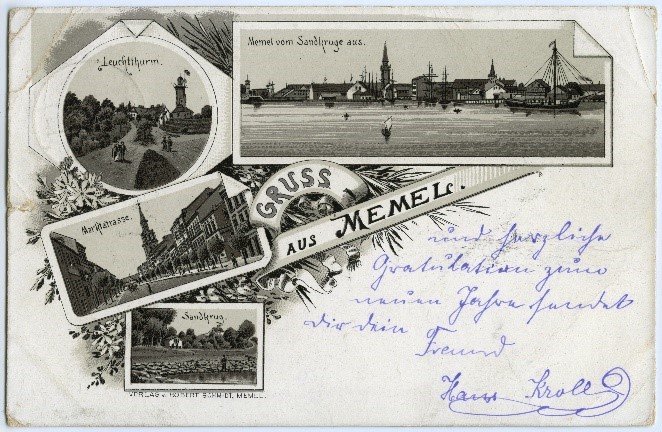 Leuchtthurm.
Memel vom Sandkruge aus.
GRUSS
AUS MEMEL.
Marktstrasse.
Sandkrug.
VERLAG v. ROBERT SCHMIDT, MEMEL.
und herzliche
Gratulation zum
neuen Jahre sendet
Dir dein
Freund
Hans Kroll